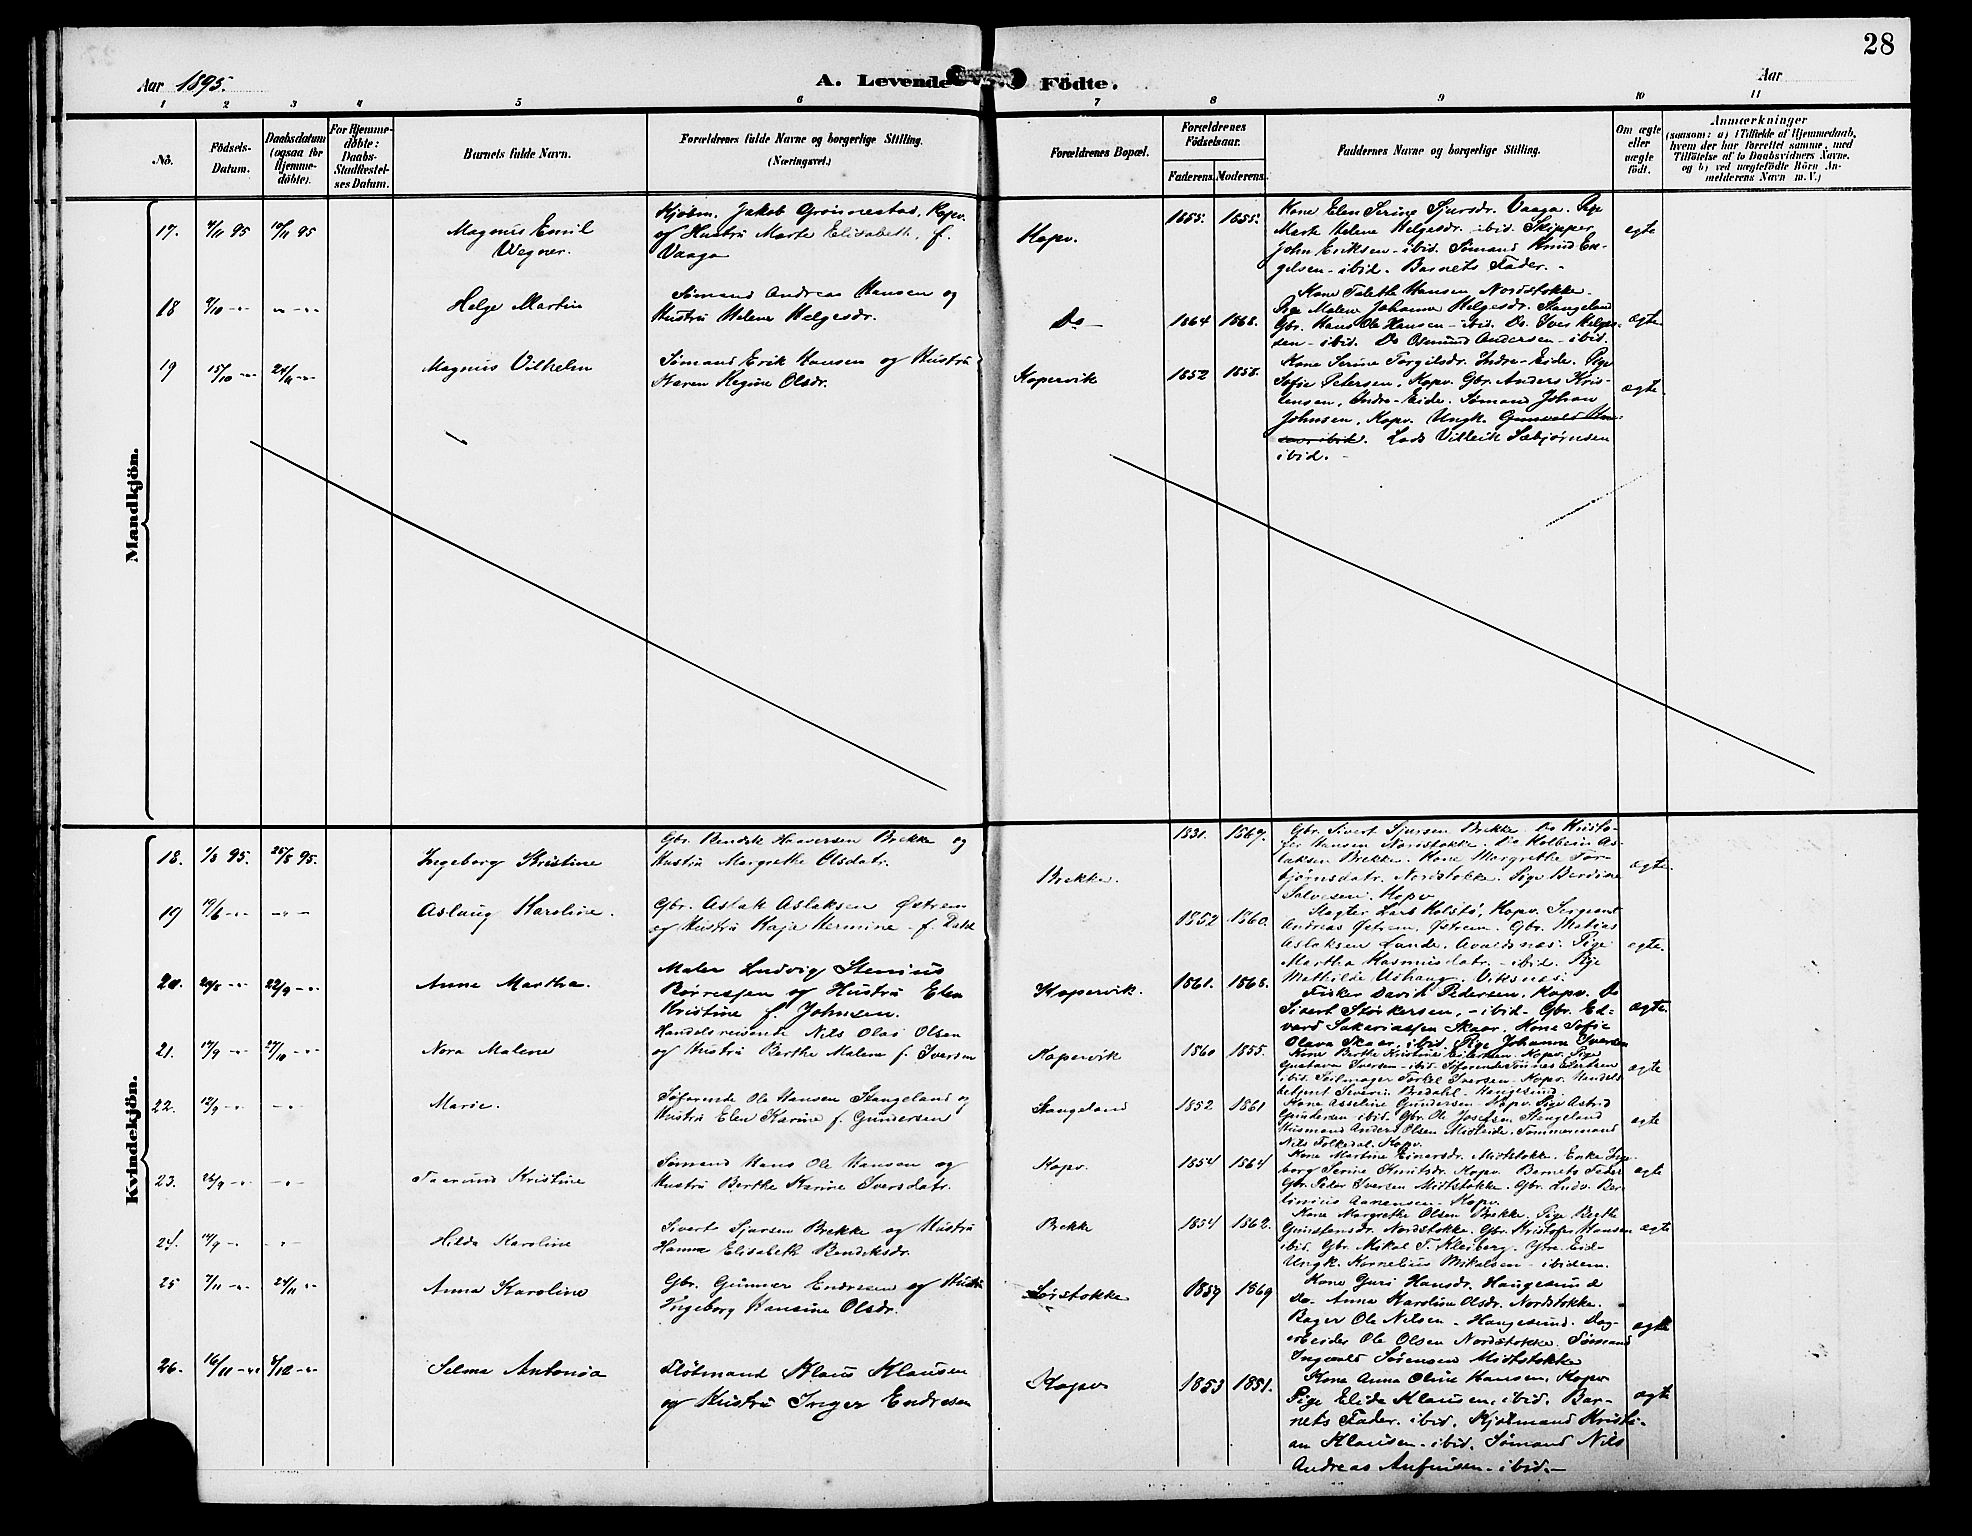 28
Aar 1895.
A. Levende Födte.
Aar
1 2 3 4 5 6 7 8 9 10 11
No.
Födsels-
Datum.
Daabsdatum
(ogsaa for
Hjemme-
döbte).
For Hjemme-
döbte:
Daabs-
Stadfæstel-
ses Datum.
Barnets fulde Navn.
Forældrenes fulde Navne og borgerlige Stilling.
(Næringsvei.)
Forældrenes Bopæl.
Forældrenes
Födselsaar.
Faderens. Moderens.
Faddernes Navne og borgerlige Stilling.
Om ægte
eller
uægte
födt.
Anmærkninger
(saasom: a) i Tilfælde af Hjemmedaab,
hvem der har forrettet samme, med
Tilföielse af to Daabsvidners Navne,
og b) ved uægtefödte Börn An-
melderens Navn m. V.)
Mandkjön.
17. 4/11 95 10/11 95
Magnus Emil
Wegner.
Kjøbm. Jakob Grønnestad, Kopv.
og Hustru Marte Elisabeth, f.
Vaaga
Kopv.
1855. 1855.
Kone Elen Serine Sjursdr. Vaaga. Pige
Marte Helene Helgesdr. ibid. Skipper
John Eriksen - ibid. Sømand Knud En-
gelsen - ibid. Barnets Fader. -
ægte
18 9/10 -"- -"- -"-
Helge Martin
Sømand Andreas Hansen og
Hustru Helene Helgesdr.
Do -
1864 1868.
Kone Talette Hansen Nordstokke.
Pige Malene Johanne Helgesdr. Stangeland
Gbr. Hans Ole Hansen - ibid. Do. Iver Helge-
sen - ibid. Do Osmund Andersen - ibid.
ægte
19 15/10 -"- 24/11 -"-
Magnus Vilhelm
Sømand Erik Hansen og Hustru
Karen Regine Olsdr.
Kopervik
1852 1858.
Kone Serine Torgilsdr. Indre-Eide. Pige
Sofie Petersen, Kopv. Gbr. Anders Kris-
tensen, Indre-Eide. Sømand Johan
Johnsen, Kopv. Ungk. Gunvald
ibid. Lods Villeik Sæbjørnsen
ibid. -
ægte
Kvindekjön.
18. 1/8 95. 25/8 95.
Ingeborg Kristine
Gbr. Bendik Haaversen Brekke og
Hustru Margrethe Olsdatr.
Brekke.
1831. 1867.
Gbr. Sivert Sjursen Brekke. Do Kristo-
fer Hansen Nordstokke. Do Kolbein As-
laksen Brekke. Kone Margrethe Tor-
bjørnsdatr. Nordstokke. Pige Berdine
Salvesen. Kopv
ægte.
19 19/6 -"- -"-
Aslaug Karoline.
Gbr. Aslak Aslaksen Østrem
og Hustru Kaja Hermine f.
1852 1860.
Slagter Lars Kolstø, Kopv. Sergeant
Andreas Østrem, Østrem. Gbr. Matias
Aslaksen Lande, Avaldsnes. Pige
Martha Rasmusdatr. - ibid. Pige
Mathilde Ushaug, Viksnes.
ægte.
20. 24/8 -"- 22/9 -"-
Anna Martha.
Maler Ludvig Stenius
Børresen og Hustru Elen
Kristine f. Johnsen.
Kopervik.
1861. 1868.
Fisker David Pedersen, Kopv. Do
Sivert Størkersen, - ibid - Gbr. Ed-
vard Sakariassen Skaar. Kone Sofie
Olava Skaar, ibid. Pige Johanne Iversen
ægte.
21. 17/9 -"- 27/10 -"-
Nora Malene
Handelsreisende Nils Olai Olsen
og Hustru Berthe Malene f. Iversen
Kopervik
1860 1855.
Kone Berthe Kristine Eilertsen. Kopv. Pige
Gustava Iversen - ibid. Søfarende Tønnes Eilertsen
ibid. Seilmager Torkel Iversen - Kopv. Handels-
betjent Severin Bredahl - Haugesund.
ægte
22. 12/9 -"- -"-
Marie.
Søfarende Ole Hansen Stangeland og
Hustru Elen Karine f. Gundersen
Stangeland
1852 1861
Kone Asseline Gundersen - Kopv. Pige Astrid
Gundersen ibid. Gbr. Ole Josefsen Stangeland
Husmand Anders Olsen Midteide. Tømmermand
Nils Folkedal. Kopv.
ægte
23. 26/9 -"- -"-
Taarund Kristine
Sømand Hans Ole Hansen og
Hustru Berthe Karine Iversdatr.
Kopv.
1854 1864
Kone Martine Einersdr. Midtstokke. Enke Inge-
borg Serine Knutsdr. Kopv. Barnets Fader
Gbr. Peder Iversen Midtstokke. Gbr. Ludv. Ber-
Aanensen. Kopv.
ægte
24. 14/9 -"- -"-
Hilda Karoline
Sivert Sjursen Brekke og Hustru
Hanna Elisabeth Bendiksdr.
Brekke
1854 1862.
Kone Margrethe Olsen Brekke. Pige Berthe
Gunstensdr. Nordstokke. Gbr. Kristofer Hansen
ibid. Gbr. Mikal T. Kleiberg. Ytre Eide
Ungk. Kornelius Mikalsen - ibidem.
ægte
25 7/11 -"- 24/11 -"-
Anna Karoline
Gbr. Gunnar Endresen og Hustru
Ingeborg Hansine Olsdr.
Sørstokke
1859 1869
Kone Guri Hansdr. Haugesund
Do. Anna Karoline Olsdr. Nordstokke.
Bager Ole Nilsen - Haugesund. Dag-
arbeider Ole Olsen Nordstokke. Sømand
Ingvald Sørensen Midtstokke
ægte
26. 16/11 -"- 8/12 -"-
Selma Antonia
Klaus Klausen
og Hustru Inger Endresen
Kopv
1853 1851.
Kone Anna Oline Hansen, Kopv
Pige Elida Klausen, ibid. Bar-
nets Fader. ibid. Kjøbmand Kristi-
an Klausen - ibid. Sømand Nils
Andreas Anfinsen - ibid. -
ægte